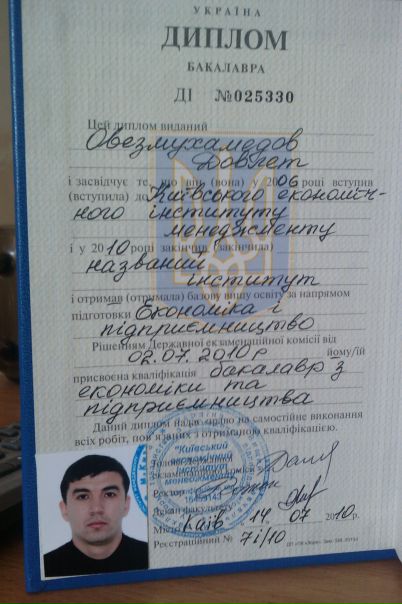 УКРАЇНА
ДИПЛОМ
БАКАЛАВРА
ДІ №025330
Цей диплом виданий
Овезмухамедов
Довлет
і засвідчує те, що він (вона) у 2006 році вступив
(вступила) до Київського економіч-
ного інституту
менеджменту
і у 2010 році закінчив (закінчила)
названий
інститут
і отримав (отримала) базову вищу освіту за напрямом
підготовки Економіка і
підприємництво
Рішенням Державної екзаменаційної комісії від
02.07.2010р йому/їй
присвоєна кваліфікація бакалавр з
економіки та
підприємництва
Даний диплом надає право на самостійне виконання
всіх робіт, пов'язаних з отриманою кваліфікацією.
"Київський
економічний
інститут
менеджменту"
Голова Державної
екзаменаційної комісії
Ректор
Декан факультету
Місто Київ 14 07 2010 р.
Реєстраційний № 7і/10